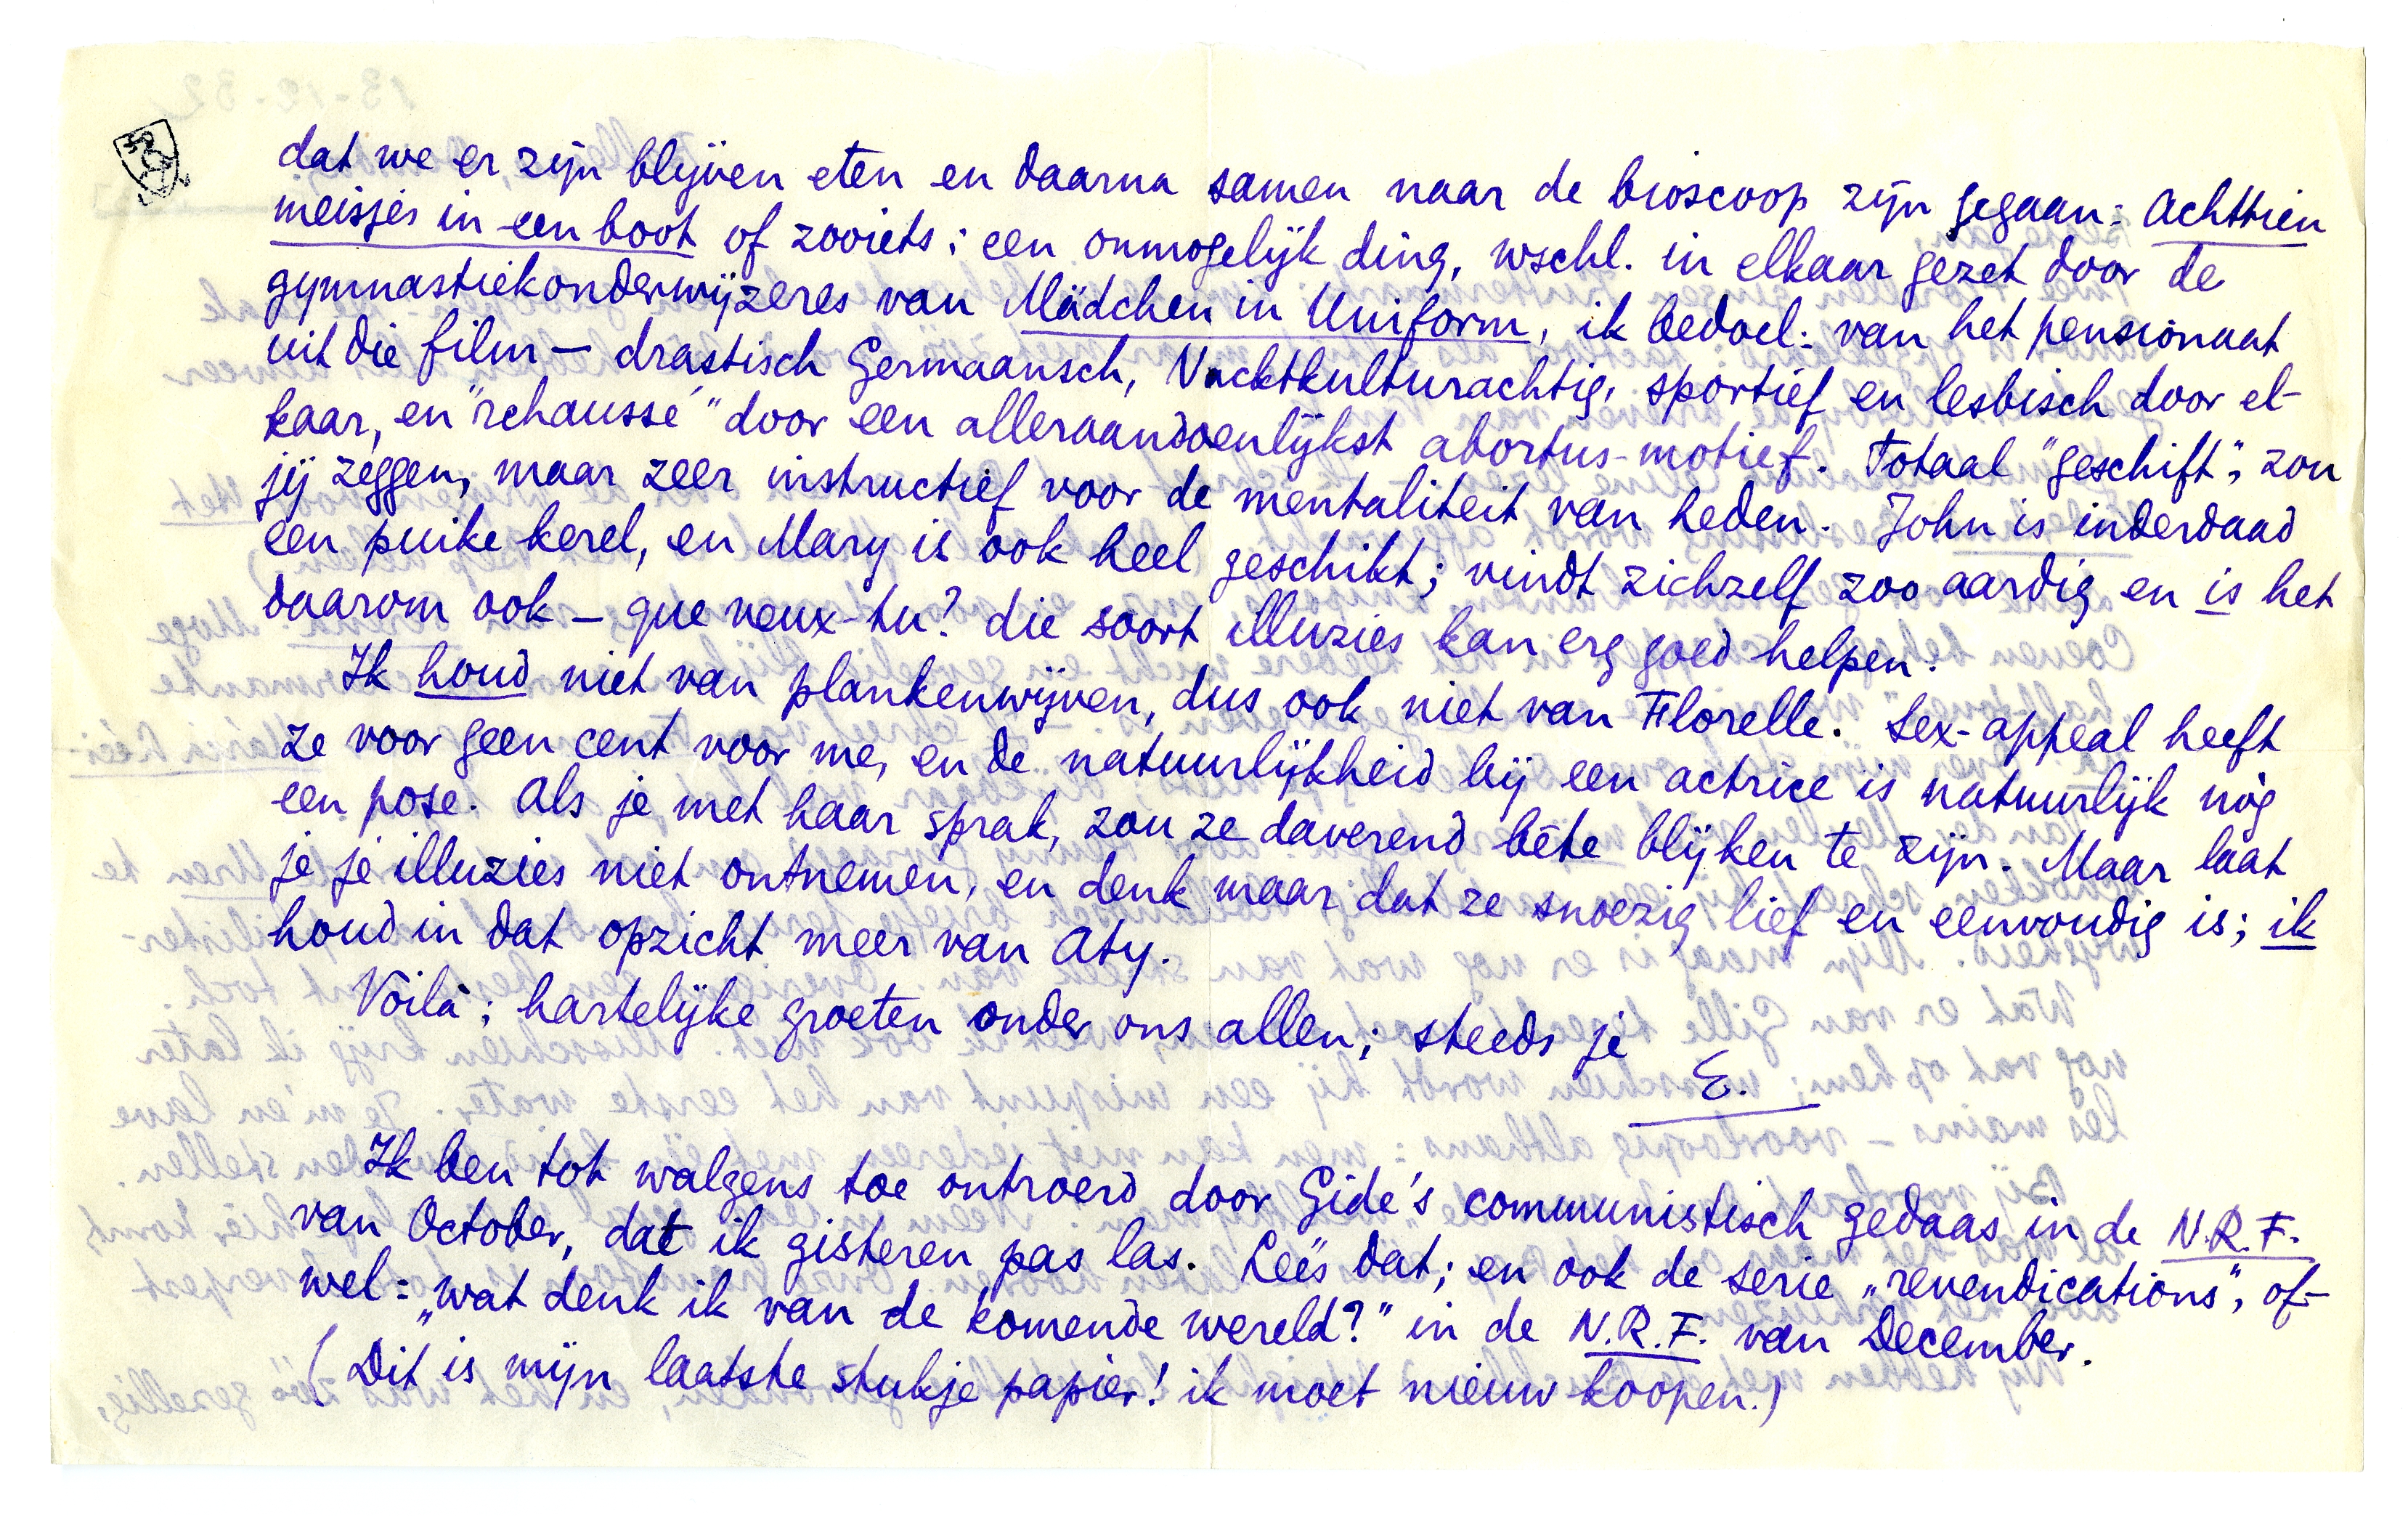 dat we er zijn blijven eten en daarna samen naar de bioscoop zijn gegaan: Achttien
meisjes in een boot of zooiets; een onmogelijk ding, wschl. in elkaar gezet door de
gymnastiekonderwijzeres van Mädchen in Uniform, ik bedoel: van het pensionaat
uit die film — drastisch Germaansch, Nacktkulturachtig, sportief en lesbisch door el-
kaar, en "rehaussé" door een alleraandoenlijkst abortus-motief. Totaal "geschift", zou
jij zeggen, maar zeer instructief voor de mentaliteit van heden. John is inderdaad
een puike kerel, en Mary is ook heel geschikt; vindt zichzelf zoo aardig en is het
daarom ook — que veux-tu? die soort illuzies kan erg goed helpen.
Ik houd niet van plankenwijven, dus ook niet van Florelle. Sex-appeal heeft
ze voor geen cent voor me, en de natuurlijkheid bij een actrice is natuurlijk nòg
een pose. Als je met haar sprak, zou ze daverend bête blijken te zijn. Maar laat
je je illuzies niet ontnemen, en denk maar dat ze snoezig, lief en eenvoudig is; ik
houd in dat opzicht meer van Aty.
Voilà; hartelijke groeten onder ons allen; steeds je
E.
Ik ben tot walgens toe ontroerd door Gide's communistisch gedaas in de N.R.F.
van October, dat ik gisteren pas las. Lees dat; en ook de serie „revendications", of-
wel: „wat denk ik van de komende wereld?" in de N.R.F. van December.
(Dit is mijn laatste stukje papier! ik moet nieuw koopen.)